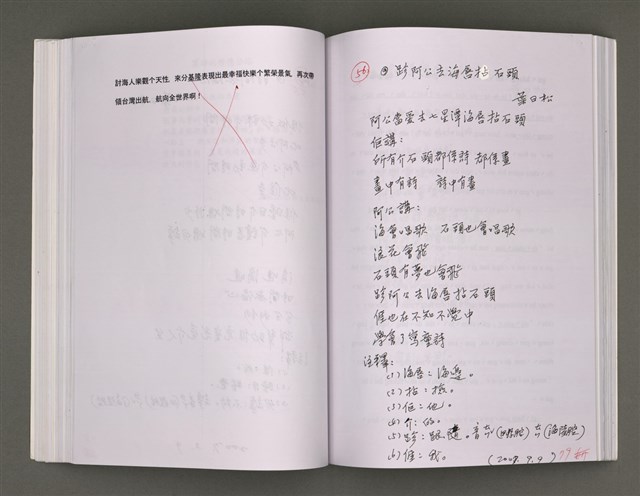 討海人樂觀个天性，來分基隆表現出最幸福快樂个繁榮景氣，再次帶
領台灣出航，航向全世界啊！
56
跈阿公去海唇拈石頭
葉日松
阿公當愛去七星潭海唇拈石頭
佢講：
所有介石頭都係詩 都係畫
畫中有詩 詩中有畫
阿公講：
海會唱歌 石頭也會唱歌
浪花會飛
石頭有夢也會飛
跈阿公去海唇拈石頭
𠊎也在不知不覺中
學會了寫童詩
注釋：
(1)海唇：海邊。
(2)拈：撿。
(3)佢：他。
(4)介：的。
(5)跈：跟隨。音 (四縣腔) (海陸腔)
(6)𠊎：我。
(2009.9.9)